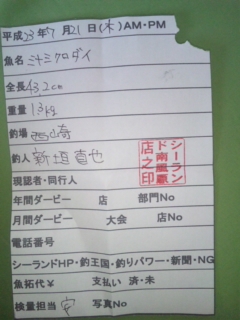 平成23年7月21日(木)AM・PM
魚名 ミナミクロダイ
全長 43.2cm
重量 1.3kg
釣場 西崎
釣人 新垣直也
シーランド南風原店之印
現認者・同行人
年間ダービー 店 部門No
月間ダービー 大会 店No
電話番号
シーランドHP・釣王国・釣りパワー・新聞・NG
魚拓代¥ 支払い 済・未
検量担当 写真No